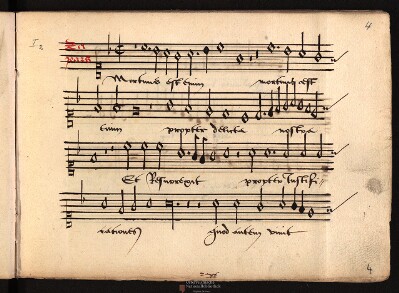 4
I 2
2a
pars
Mortuus est enim mortuus est
enim propter delicta nostra
Et Resurrexit propter Iustifi
cationes quod autem vivit
4